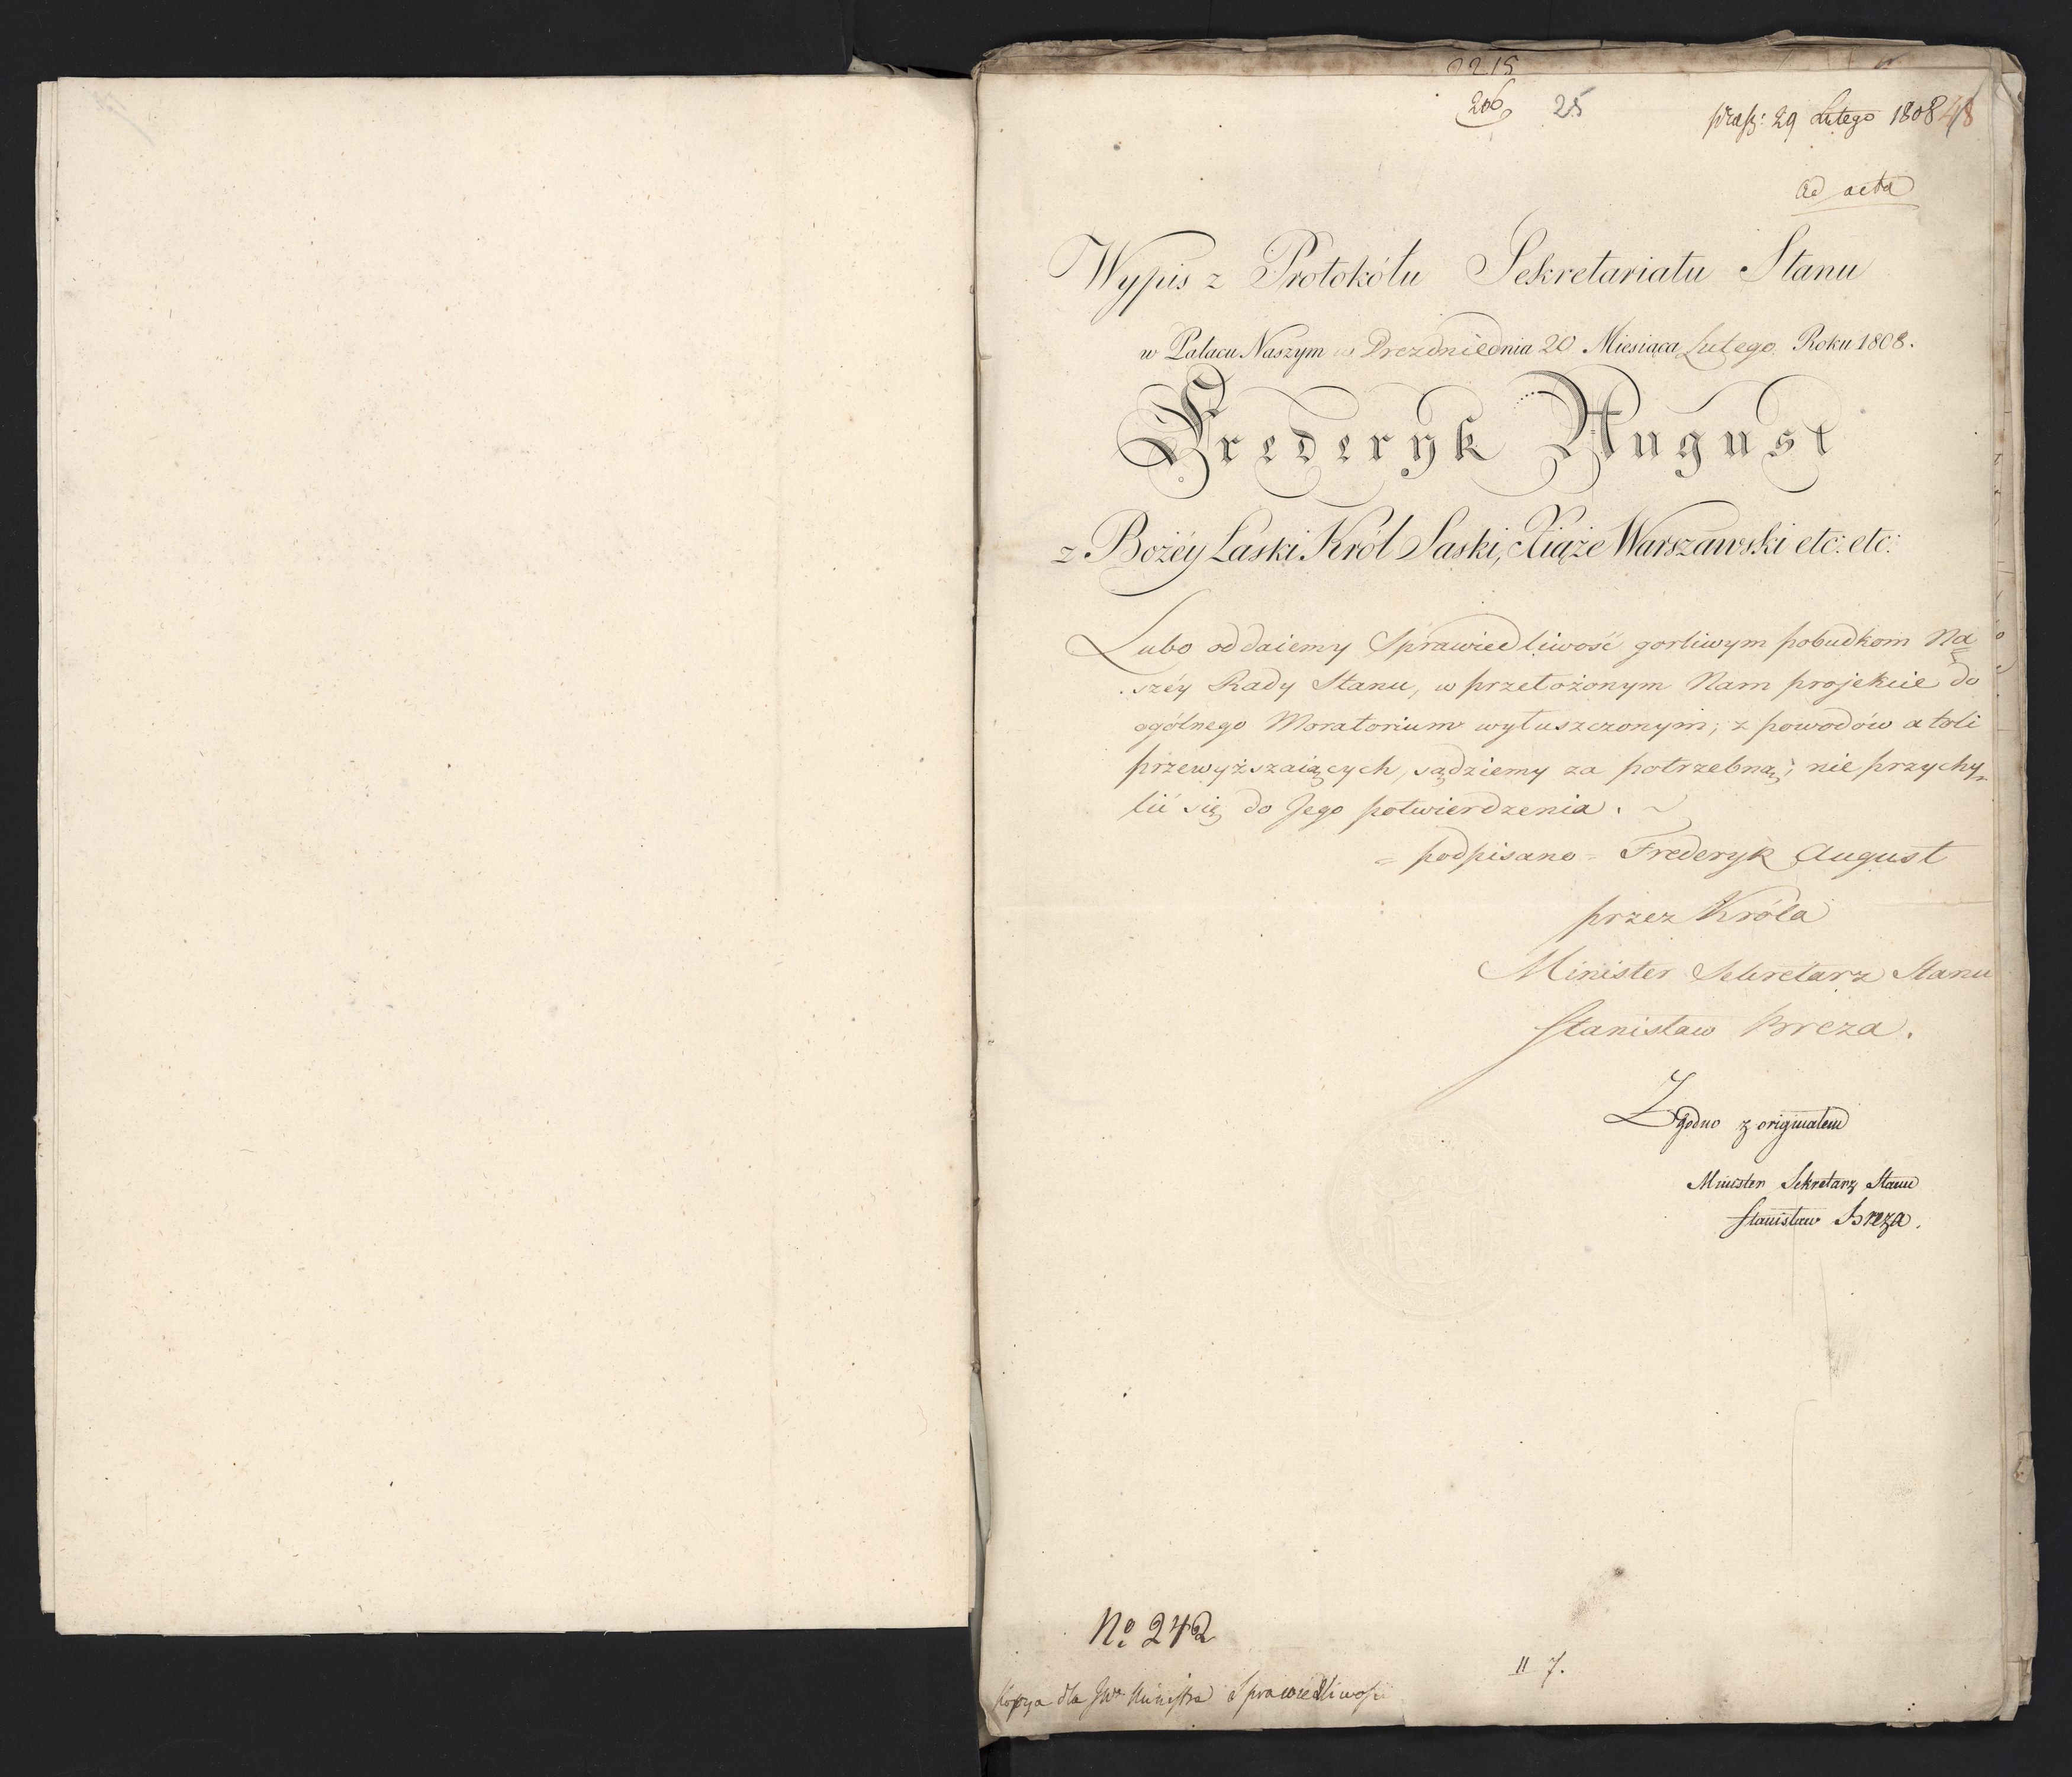 2215
206 25
praes: 29 Lutego 1808 48
ad acta
Wypis z Protokółu Sekretariatu Stanu
w Pałacu Naszym w Dreznie dnia 20 Miesiąca Lutego Roku 1808.
Frederyk August
z Bożéy Łaski Król Saski, Xiąże Warszawski etc: etc:
Lubo oddaiemy Sprawiedliwość gorliwym pobudkom Na=
széy Rady Stanu, w przełożonym Nam projekcie do
ogólnego Moratorium wyłuszczonym; z powodów atoli
przewyższaiących, sądziemy za potrzebną, nie przychy=
lić się do Jego potwierdzenia.
= podpisano = Frederyk August
przez Króla
Minister Sekretarz Stanu
Stanisław Breza.
Zgodno z originałem
Minister Sekretarz Stanu
Stanisław Breza.
No 242
II 7.
Kopya dla JWo Ministra Sprawiedliwości